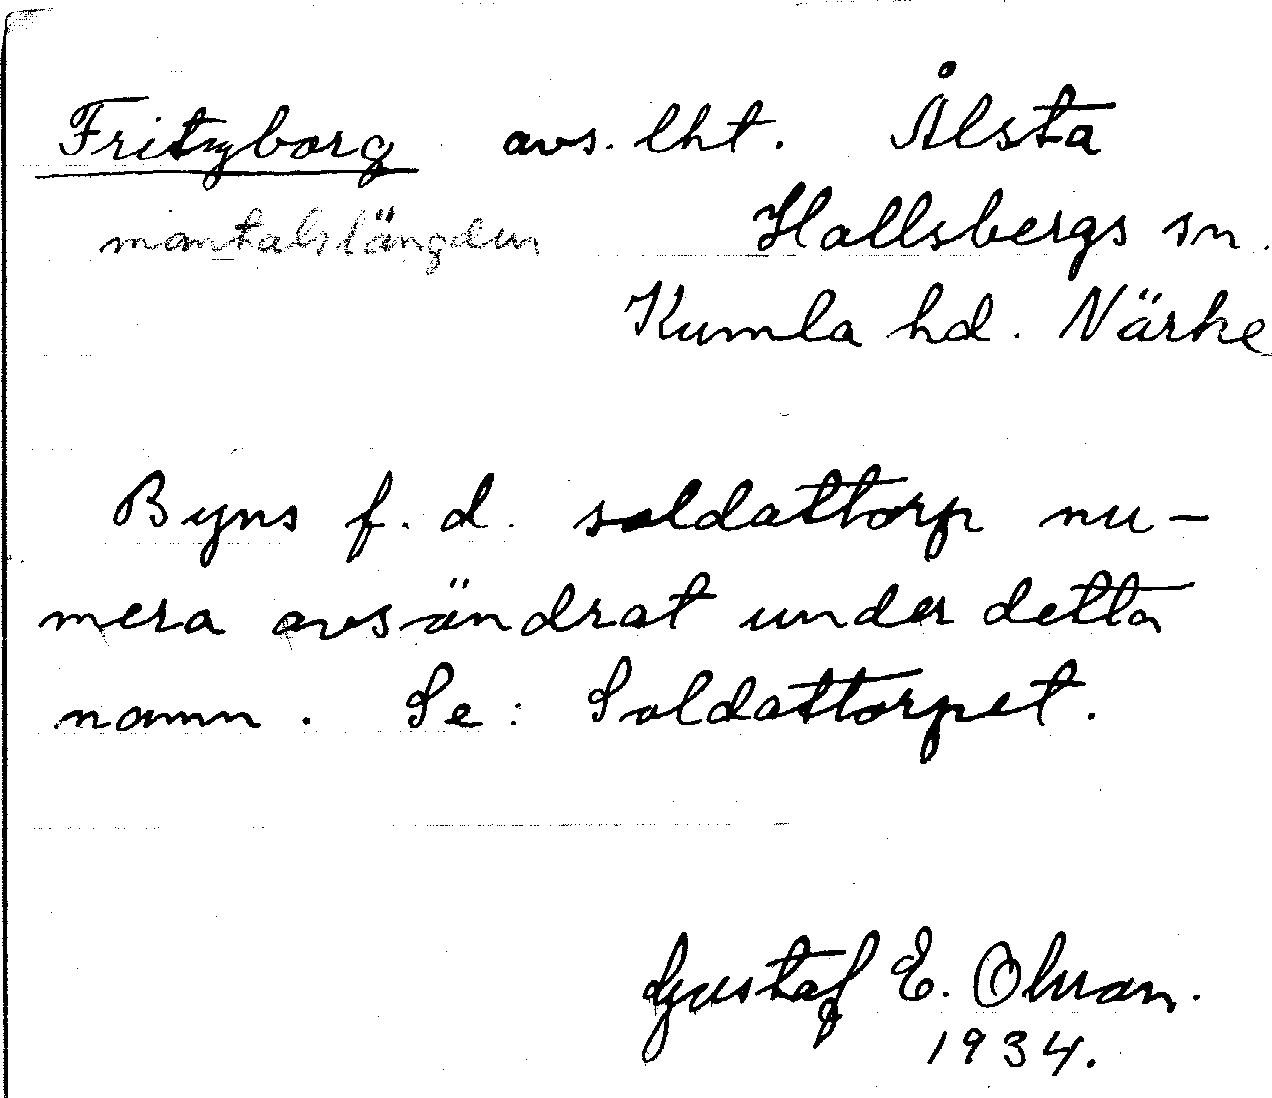 Fritzborg avs. lht. Ålsta
mantalslängden Hallsbergs sn.
Kumla hd. Närke
Byns f. d. soldattorp nu-
mera avsöndrat under detta
namn. Se: Soldattorpet.
Gustaf E. Ohman.
1934.